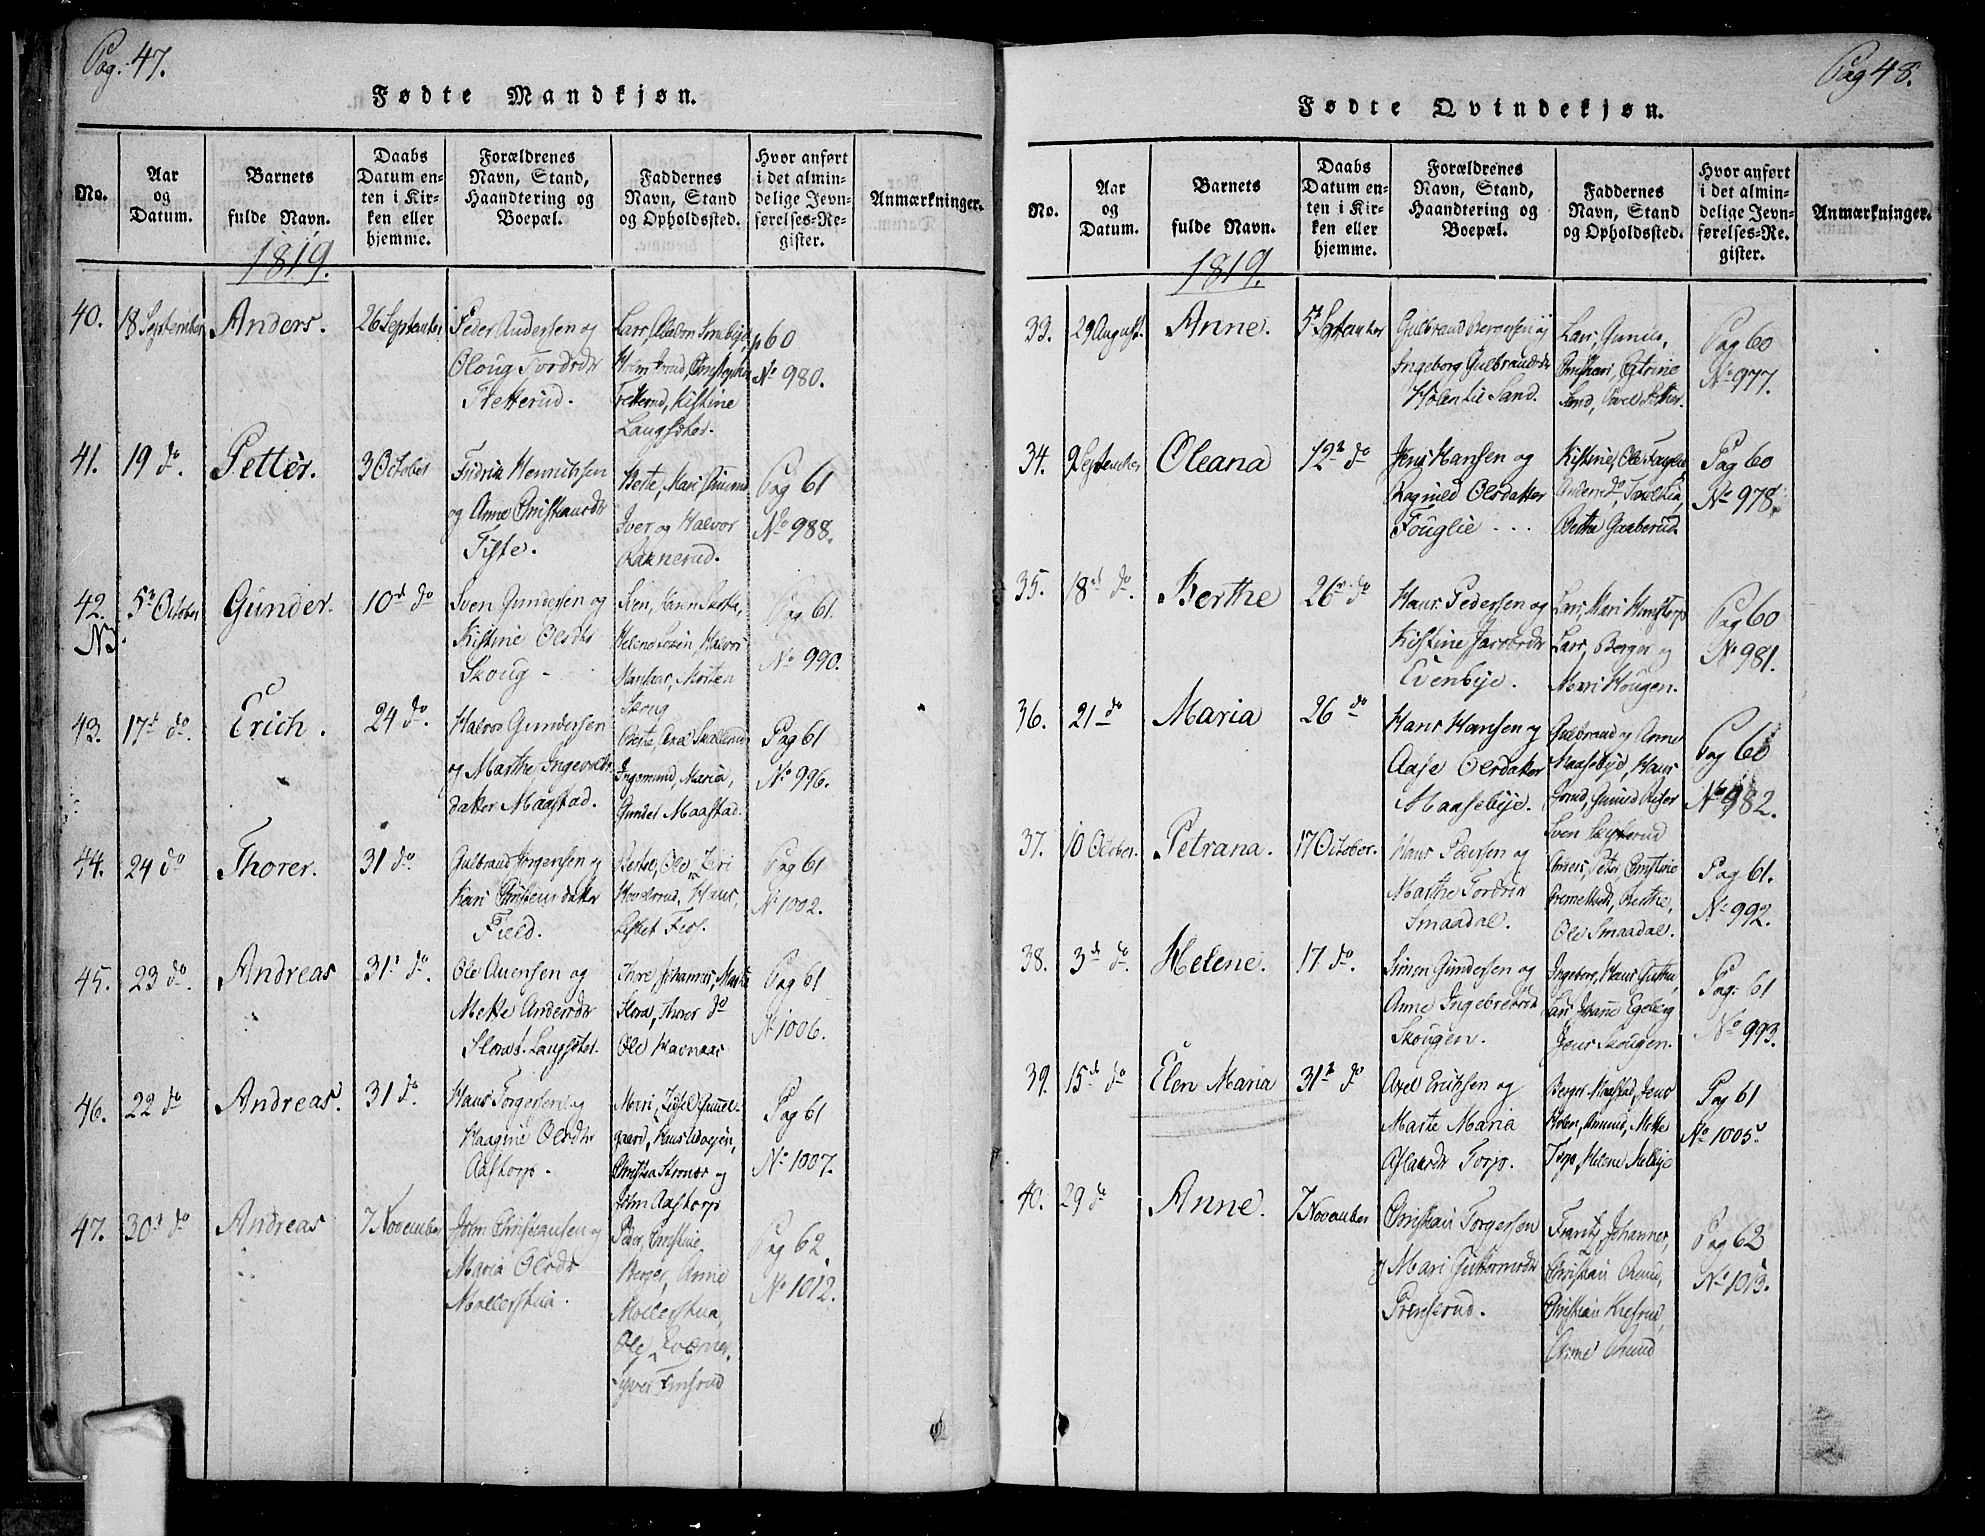 Pag. 47.
Fødte Mandkjøn.
No.
Aar
og
Datum.
Barnets
fulde Navn.
Daabs
Datum en-
ten i Kir-
ken eller
hjemme.
Forældrenes
Navn, Stand,
Haandtering og
Boepæl.
Faddernes
Navn, Stand
og Opholdssted.
Hvor anført
i det almin-
delige Jevn-
førelses-Re-
gister.
Anmærkninger.
1819.
40. 18 September Anders. 26 September
Peder Andersen og
Oloug Tordsdr
Fretterud.
Kistine
Laugster.
p60
No 980.
41. 19 do. Petter. 3 October
og Anne Christiansdr
Tiste.
Berte, Mari
Iver og Halvor
Rannerud.
Pag 61
No 988.
42. 5t October Gunder. 10d do
NB.
Sven Gundersen og
Kistine Olsdr
Skoug -
Sven,
Helene Halvor
Morten
Skoug
Pag 61.
No 990.
43. 17d do. Erich. 24 do.
Halvor Gundersen
og Marthe Ingevalds
datter Maastad.
Berte, Axel
Ingemund, Maria,
Gunder Maastad.
Pag 61
No 996.
44. 24 do Thorer. 31 do
Gulbrand Jørgensen og
Kari Christensdatter
Field.
Ole, Siri
Hans,
Pag 61
No 1002.
45. 23 do. Andreas 31t do.
Ole Auensen og
Mette Andersdr
Slora. Laugster.
Johannes, Marte
Slora, Thorer do
Ole Havnaas
Pag 61
No 1006.
46. 22 do Andreas. 31 do.
Hans Torgersen og
Olsdr
Aastorp.
Mari,
gaard,
og
John Aastorp
Pag 61
No 1007.
47. 30t do Andreas 7 November
John Christiansen og
Maria Olsdr
Mollerstua.
Peder, Christine
Berger, Anne
Mollerstua,
Ole
Syver
Pag 62.
No 1012.
Pag 48.
Fødte Qvindekjøn.
No.
Aar
og
Datum.
Barnets
fulde Navn.
Daabs
Datum en-
ten i Kir-
ken eller
hjemme.
Forældrenes
Navn, Stand,
Haandtering og
Boepæl.
Faddernes
Navn, Stand
og Opholdssted.
Hvor anført
i det almin-
delige Jevn-
førelses-Re-
gister.
Anmærkninger.
1819.
33. 29 August. Anne. 5t September
Gulbrand Bergersen og
Ingeborg Gulbrandsdr
Sand.
Lars,
Sand,
Pag 60
No 977.
34. 9 September Oleana 12t do
Jens Hansen og
Ragnild Olsdatter
Fouglie
Kistine, Ole
Berthe Gaaberud
Pag 60
No 978.
35. 18d do. Berthe 26t do
Hans Pedersen og
Kistine Jacobsdr
Evenbye.
Lars, Mari
Lars, Berger og
Mari Hougen.
Pag 60
No 981.
36. 21 do Maria 26 do
Hans Hansen og
Aase Olsdatter
Maasebye.
Gulbrand og Anne
Maasebye, Hans
Sven
Pag 60
No 982.
37. 10 October. Petrana. 17 October.
Hans Pedersen og
Marthe Tordsdr
Smaadal.
Peter Christine
Berthe,
Ole Smaadal.
Pag 61.
No 992.
38. 3d do. Helene. 17 do.
Simon Gundersen og
Anne Ingebretsdr
Skougen.
Ingeborg, Hans
Egeberg
Jens Skougen.
Pag: 61
No 993.
39. 15d do Elen Maria 31t do
Axel Erichsen og
Marte Maria
Aslaksdr Torp.
Berger Maastad, Jens
Holen, Amund, Mette
Torp, Helene Melbye
Pag 61
No 1005.
40. 29 do Anne. 7 November
Christian Torgersen
og Mari Guttormsdr
Prenserud.
Frants, Johannes,
Christian
Christian
Pag 62
No 1013.